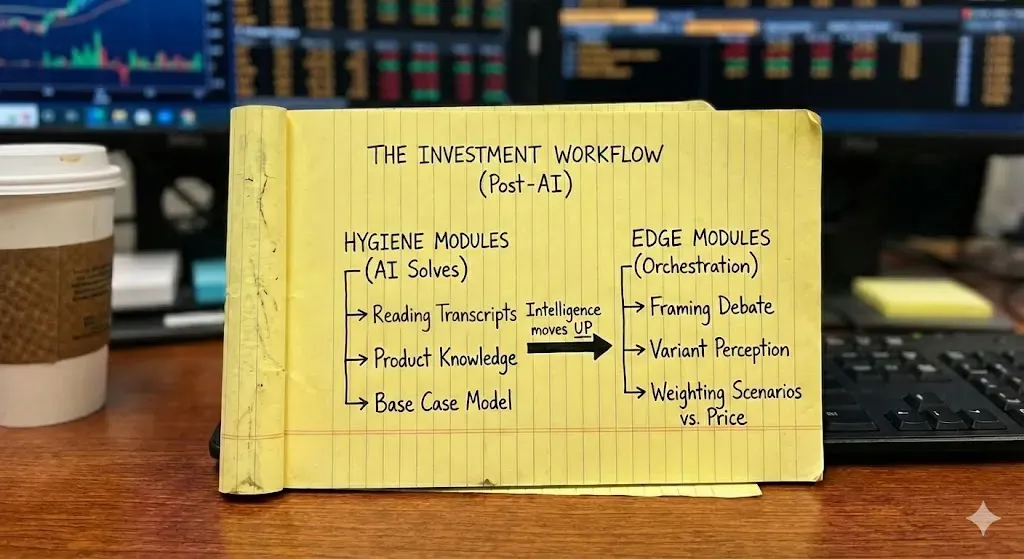 THE INVESTMENT WORKFLOW
(Post-AI)
HYGIENE MODULES
(AI Solves)
Reading Transcripts
Product Knowledge
Base Case Model
Intelligence
moves UP
EDGE MODULES
(Orchestration)
Framing Debate
Variant Perception
Weighting Scenarios
vs. Price